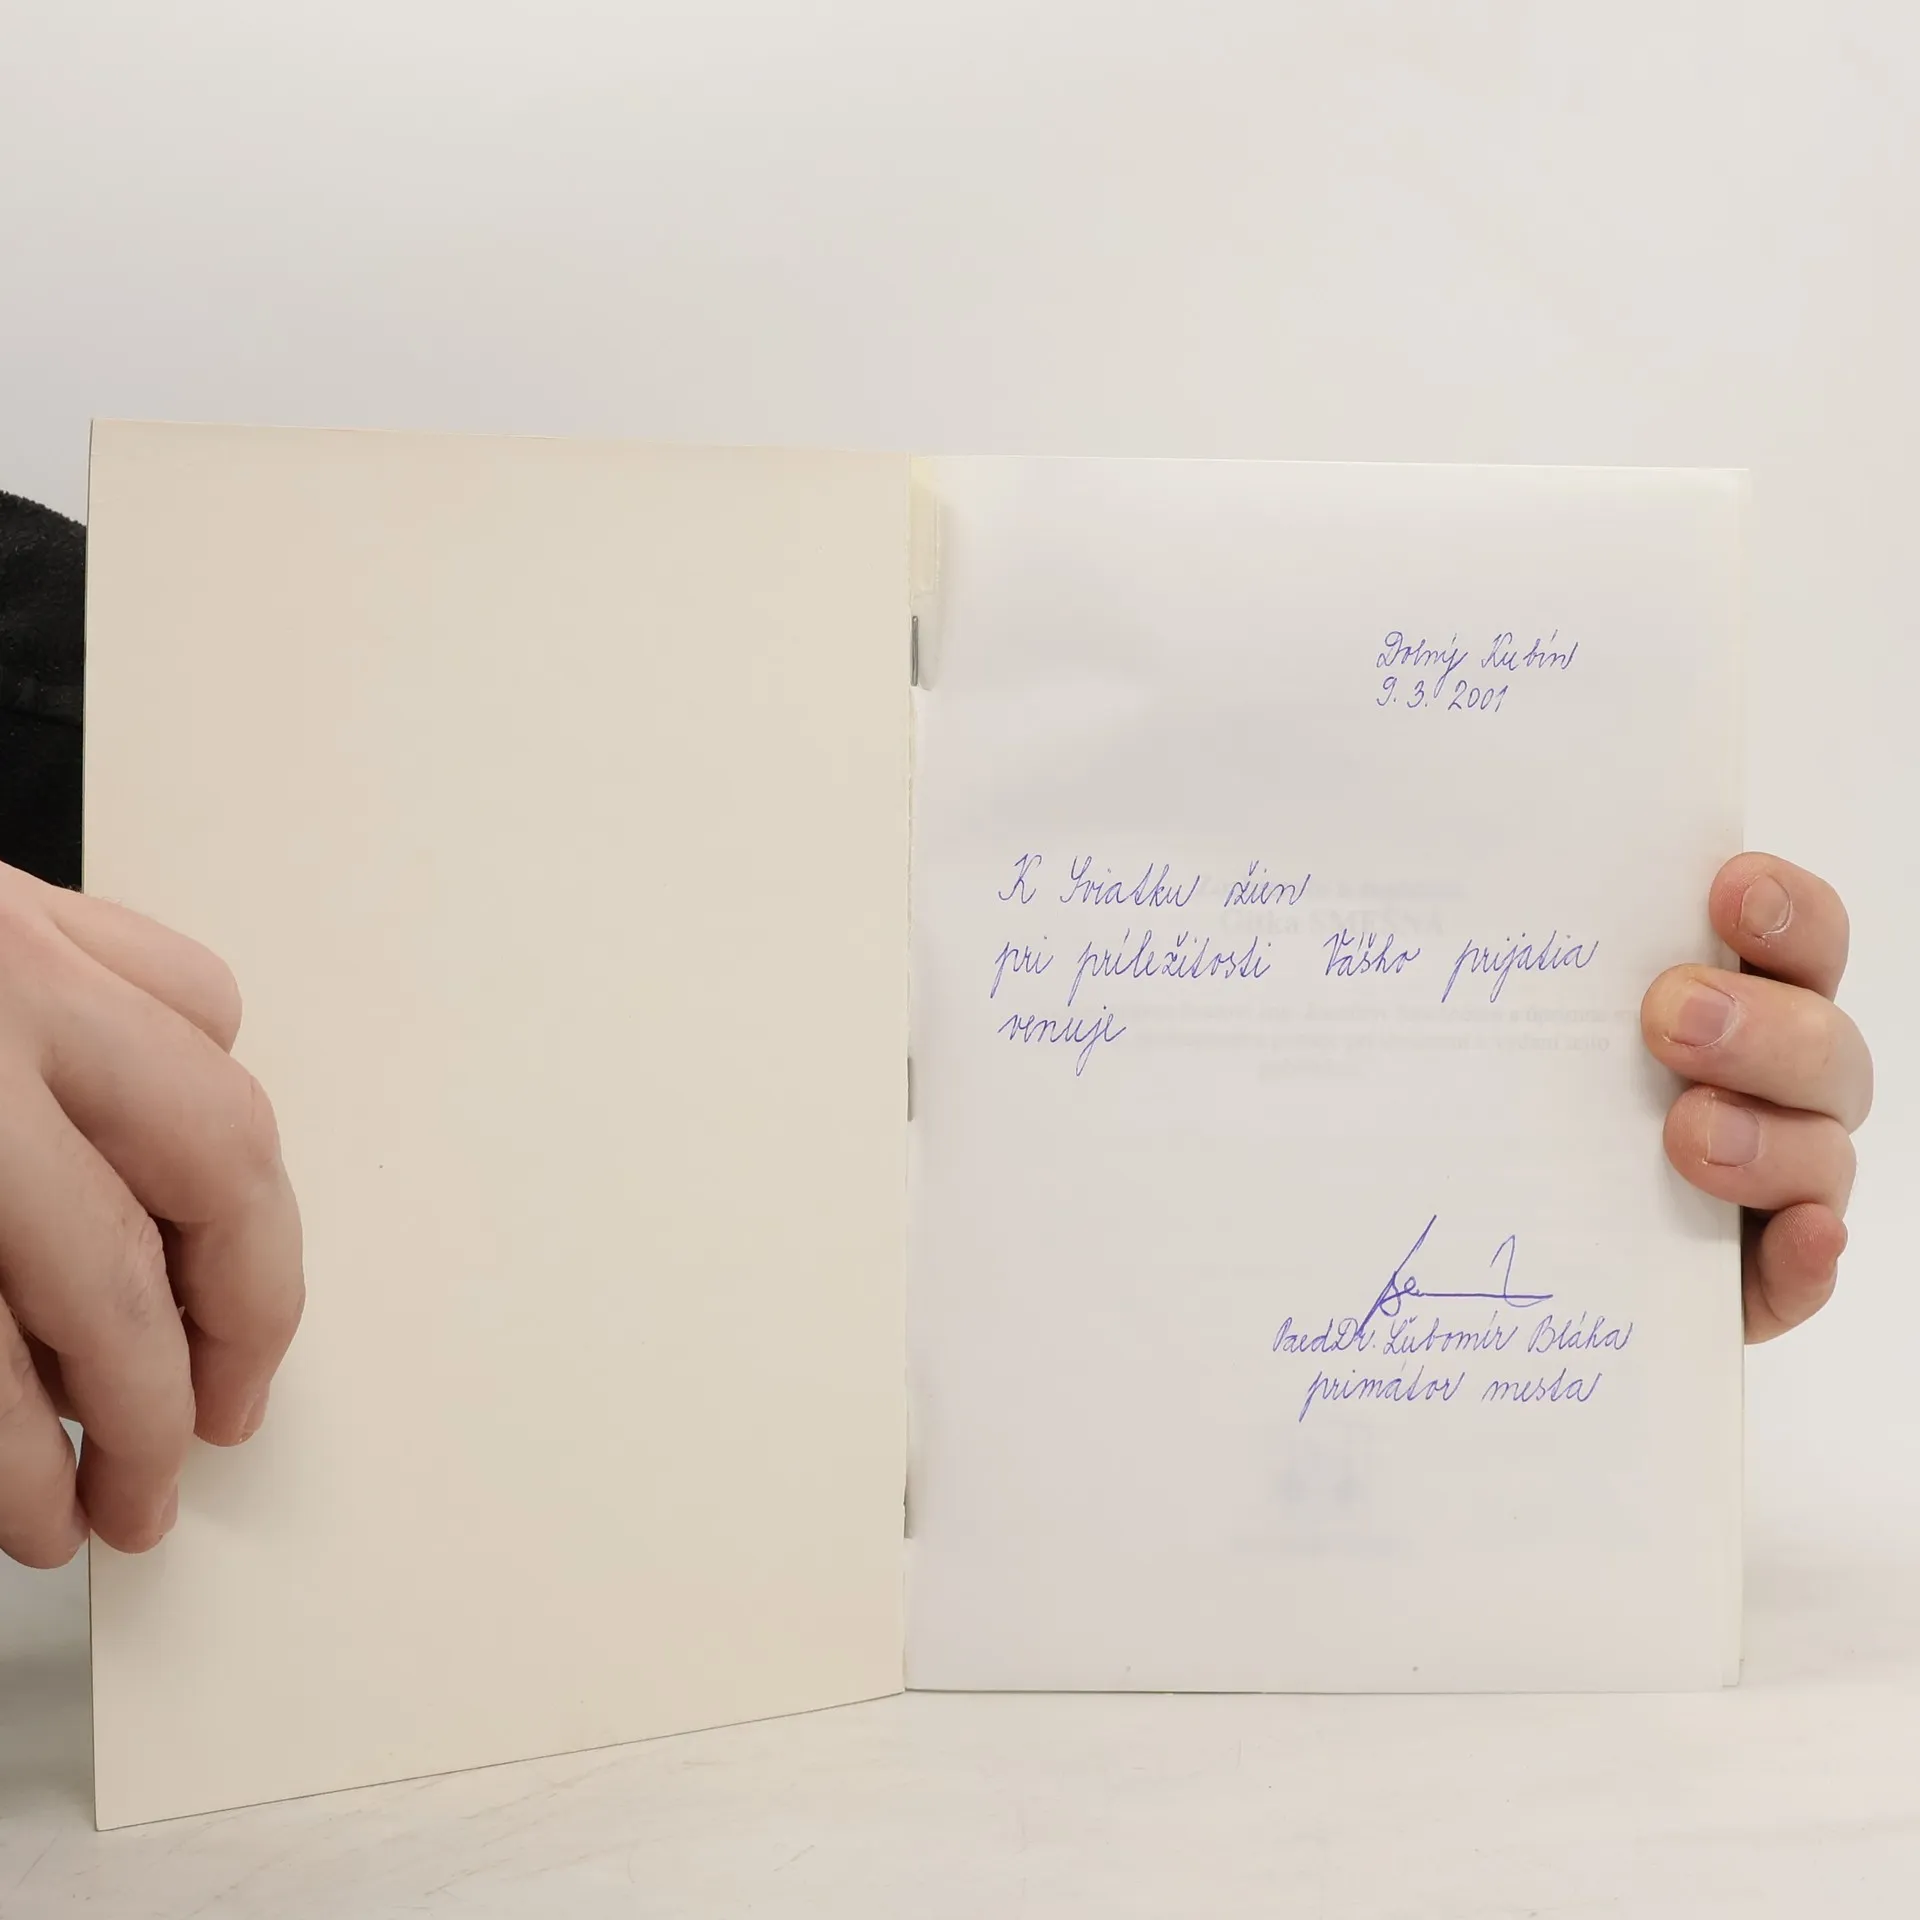 Dolný Kubín
9. 3. 2001
K Sviatku žien
pri príležitosti Vášho prijatia
venuje
PaedDr. Ľubomír Bláha
primátor mesta